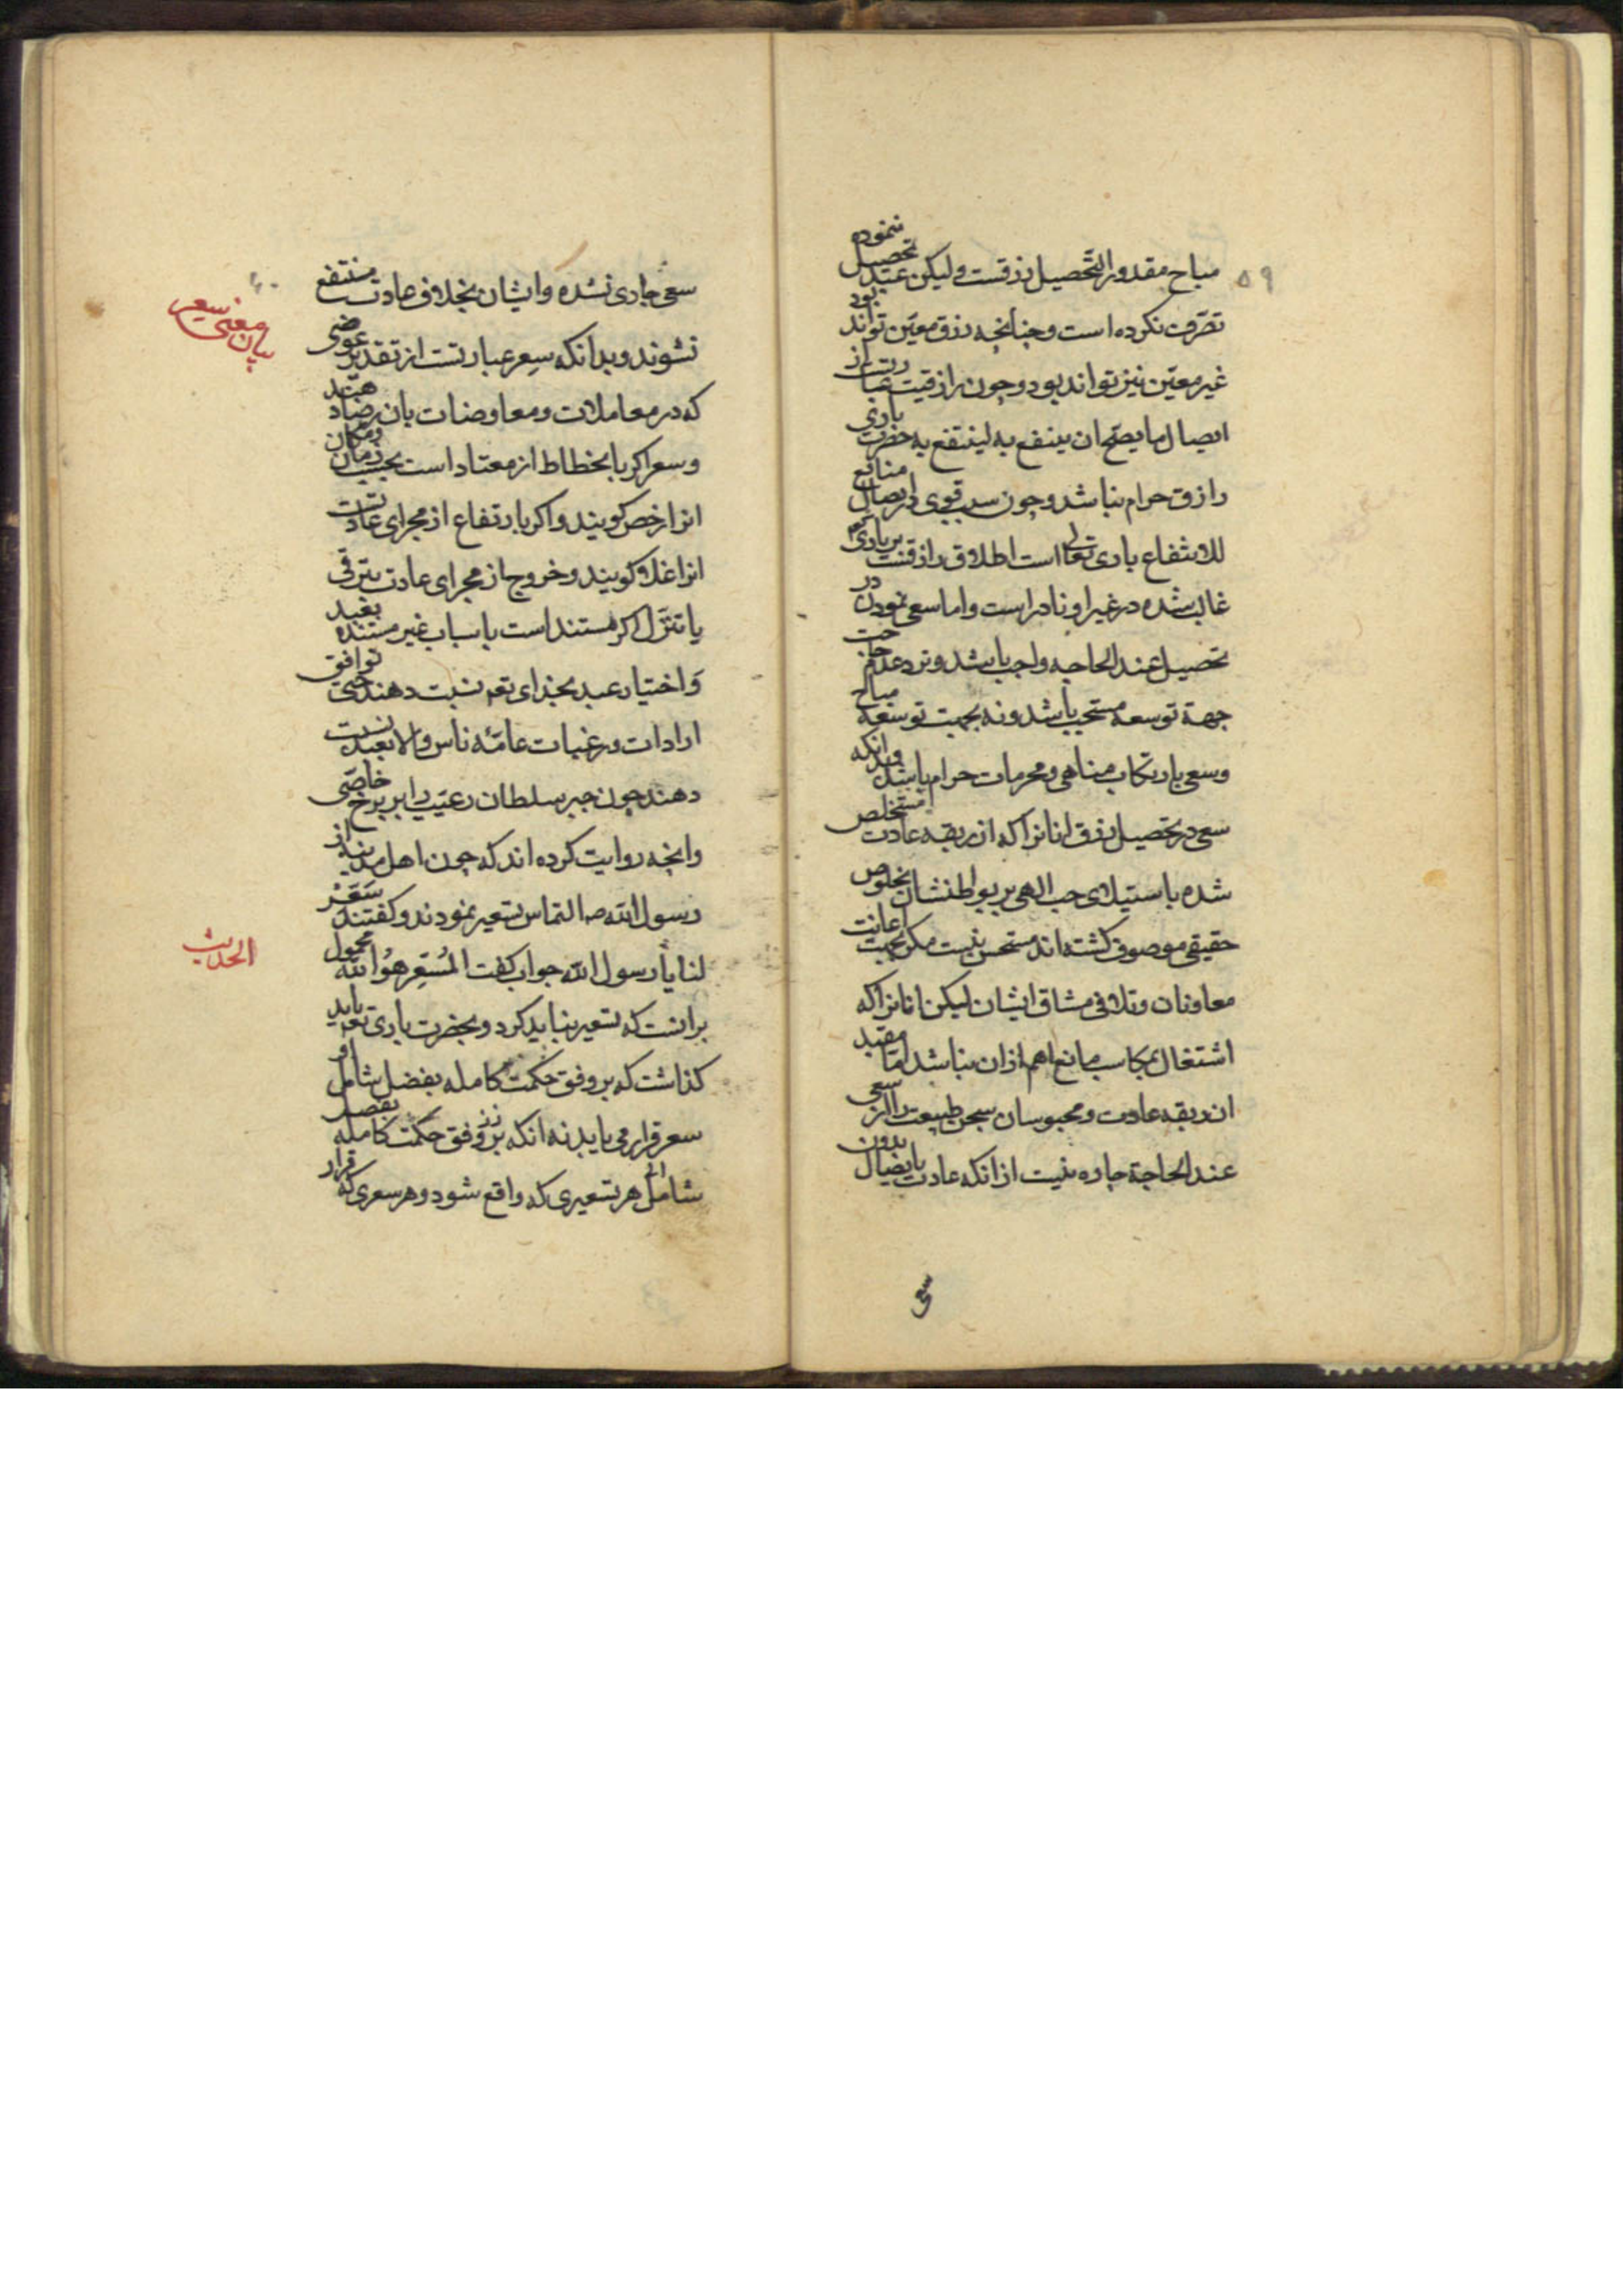 ٥٩
مباح مقدور التّحصیل رزقست و لیکن عبد تحصیل ننموده
تصرّف نکرده است و جنانجه رزق معیّن تواند بود
غیر معیّن نیز تواند بود و جون رازقیت عبارتست از
ایصال ما یصح ان ینفع به لینتفع به حضرت باری
رازق حرام نباشد و جون سبب قوی در ایصال منافع
للانتفاع باری تعالی است اطلاق رازقیت بر باری
غالب شده در غیر او نادر است و اما سعی نمودن در
تحصیل عند الحاجه واجب باشد و نزد عدم حاجت
جهة توسعه مستحب باشد و نه بجهت توسعه مباح
و سعی بارتکاب مناهی و محرمات حرام باشد و بدانکه
سعی در تحصیل رزق انانرا که از ربقه عادت مستخلص
شده باستیلای حب الهی بر بواطنشان بخلوص
حقیقی موصوف کشته اند مستحسن نیست مکر بجهت اعانت
معاونان و تلافی مشاق ایشان لیکن انانرا که
اشتغال بمکاسب مانع اهم از ان نباشد امّا مقید
ان ربقه عادت و محبوسان سجن طبیعت را از سعی
عند الحاجة جاره نیست از انکه عادت بایصال بدون
سعی
سعی جاری نشده و ایشان بخلاف عادت منتفع
نشوند و بدانکه سِعر عبارتست از تقدیر عوضی
که در معاملات و معاوضات بان رضا دهند
و سعر اکر بانخطاط از معتاد است بحسب زمان و مکان
انرا رخص کویند و اکر بارتفاع از مجرای عادتست
انرا غلا کویند و خروج از مجرای عادت بترقی
یا تنزّل اکر مستند است باسباب غیر مستنده بعبد
و اختیار عبد بخدای تعه نسبت دهند حتی توافق
ارادات و رغبات عامّه ناس و الا بعبد نسبت
دهند جون جبر سلطان رعیت را بر نرخ خاصّی
و انجه روایت کرده اند که جون اهل مدینه از
رسول الله صه التماس تسعیر نمودند و کفتند سَعِّرْ
لنا یا رسول الله جواب کفت المُسَعِّر هُوَ الله محمول
بر انست که تسعیر نباید کرد و بحضرت باری تعه باید
کذاشت که بر وفق حکمت کامله بفضل شامل او
سعر قرار می یابد نه انکه بر وفق حکمت کامله
شامل هر تسعیری که واقع شود و هر سعری که قرار
بیان معنی سعر
الحدیث